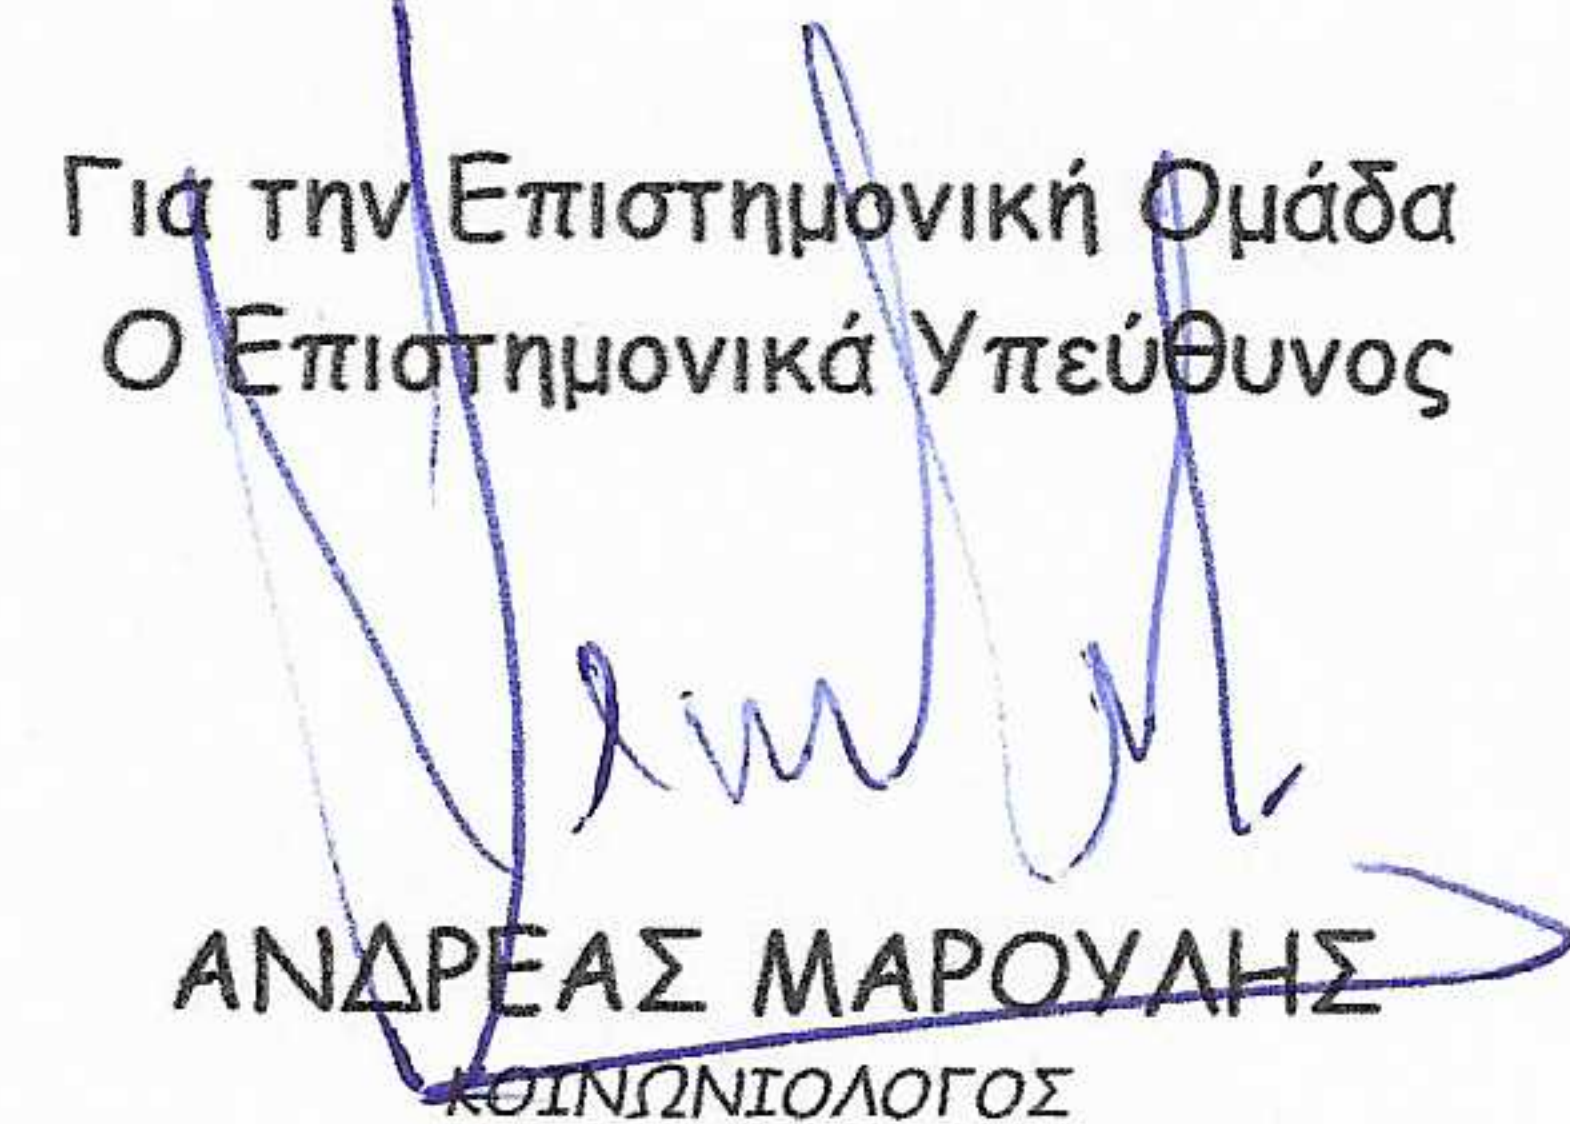 Για την Επιστημονική Ομάδα
Ο Επιστημονικά Υπεύθυνος
ΑΝΔΡΕΑΣ ΜΑΡΟΥΛΗΣ
ΚΟΙΝΩΝΙΟΛΟΓΟΣ